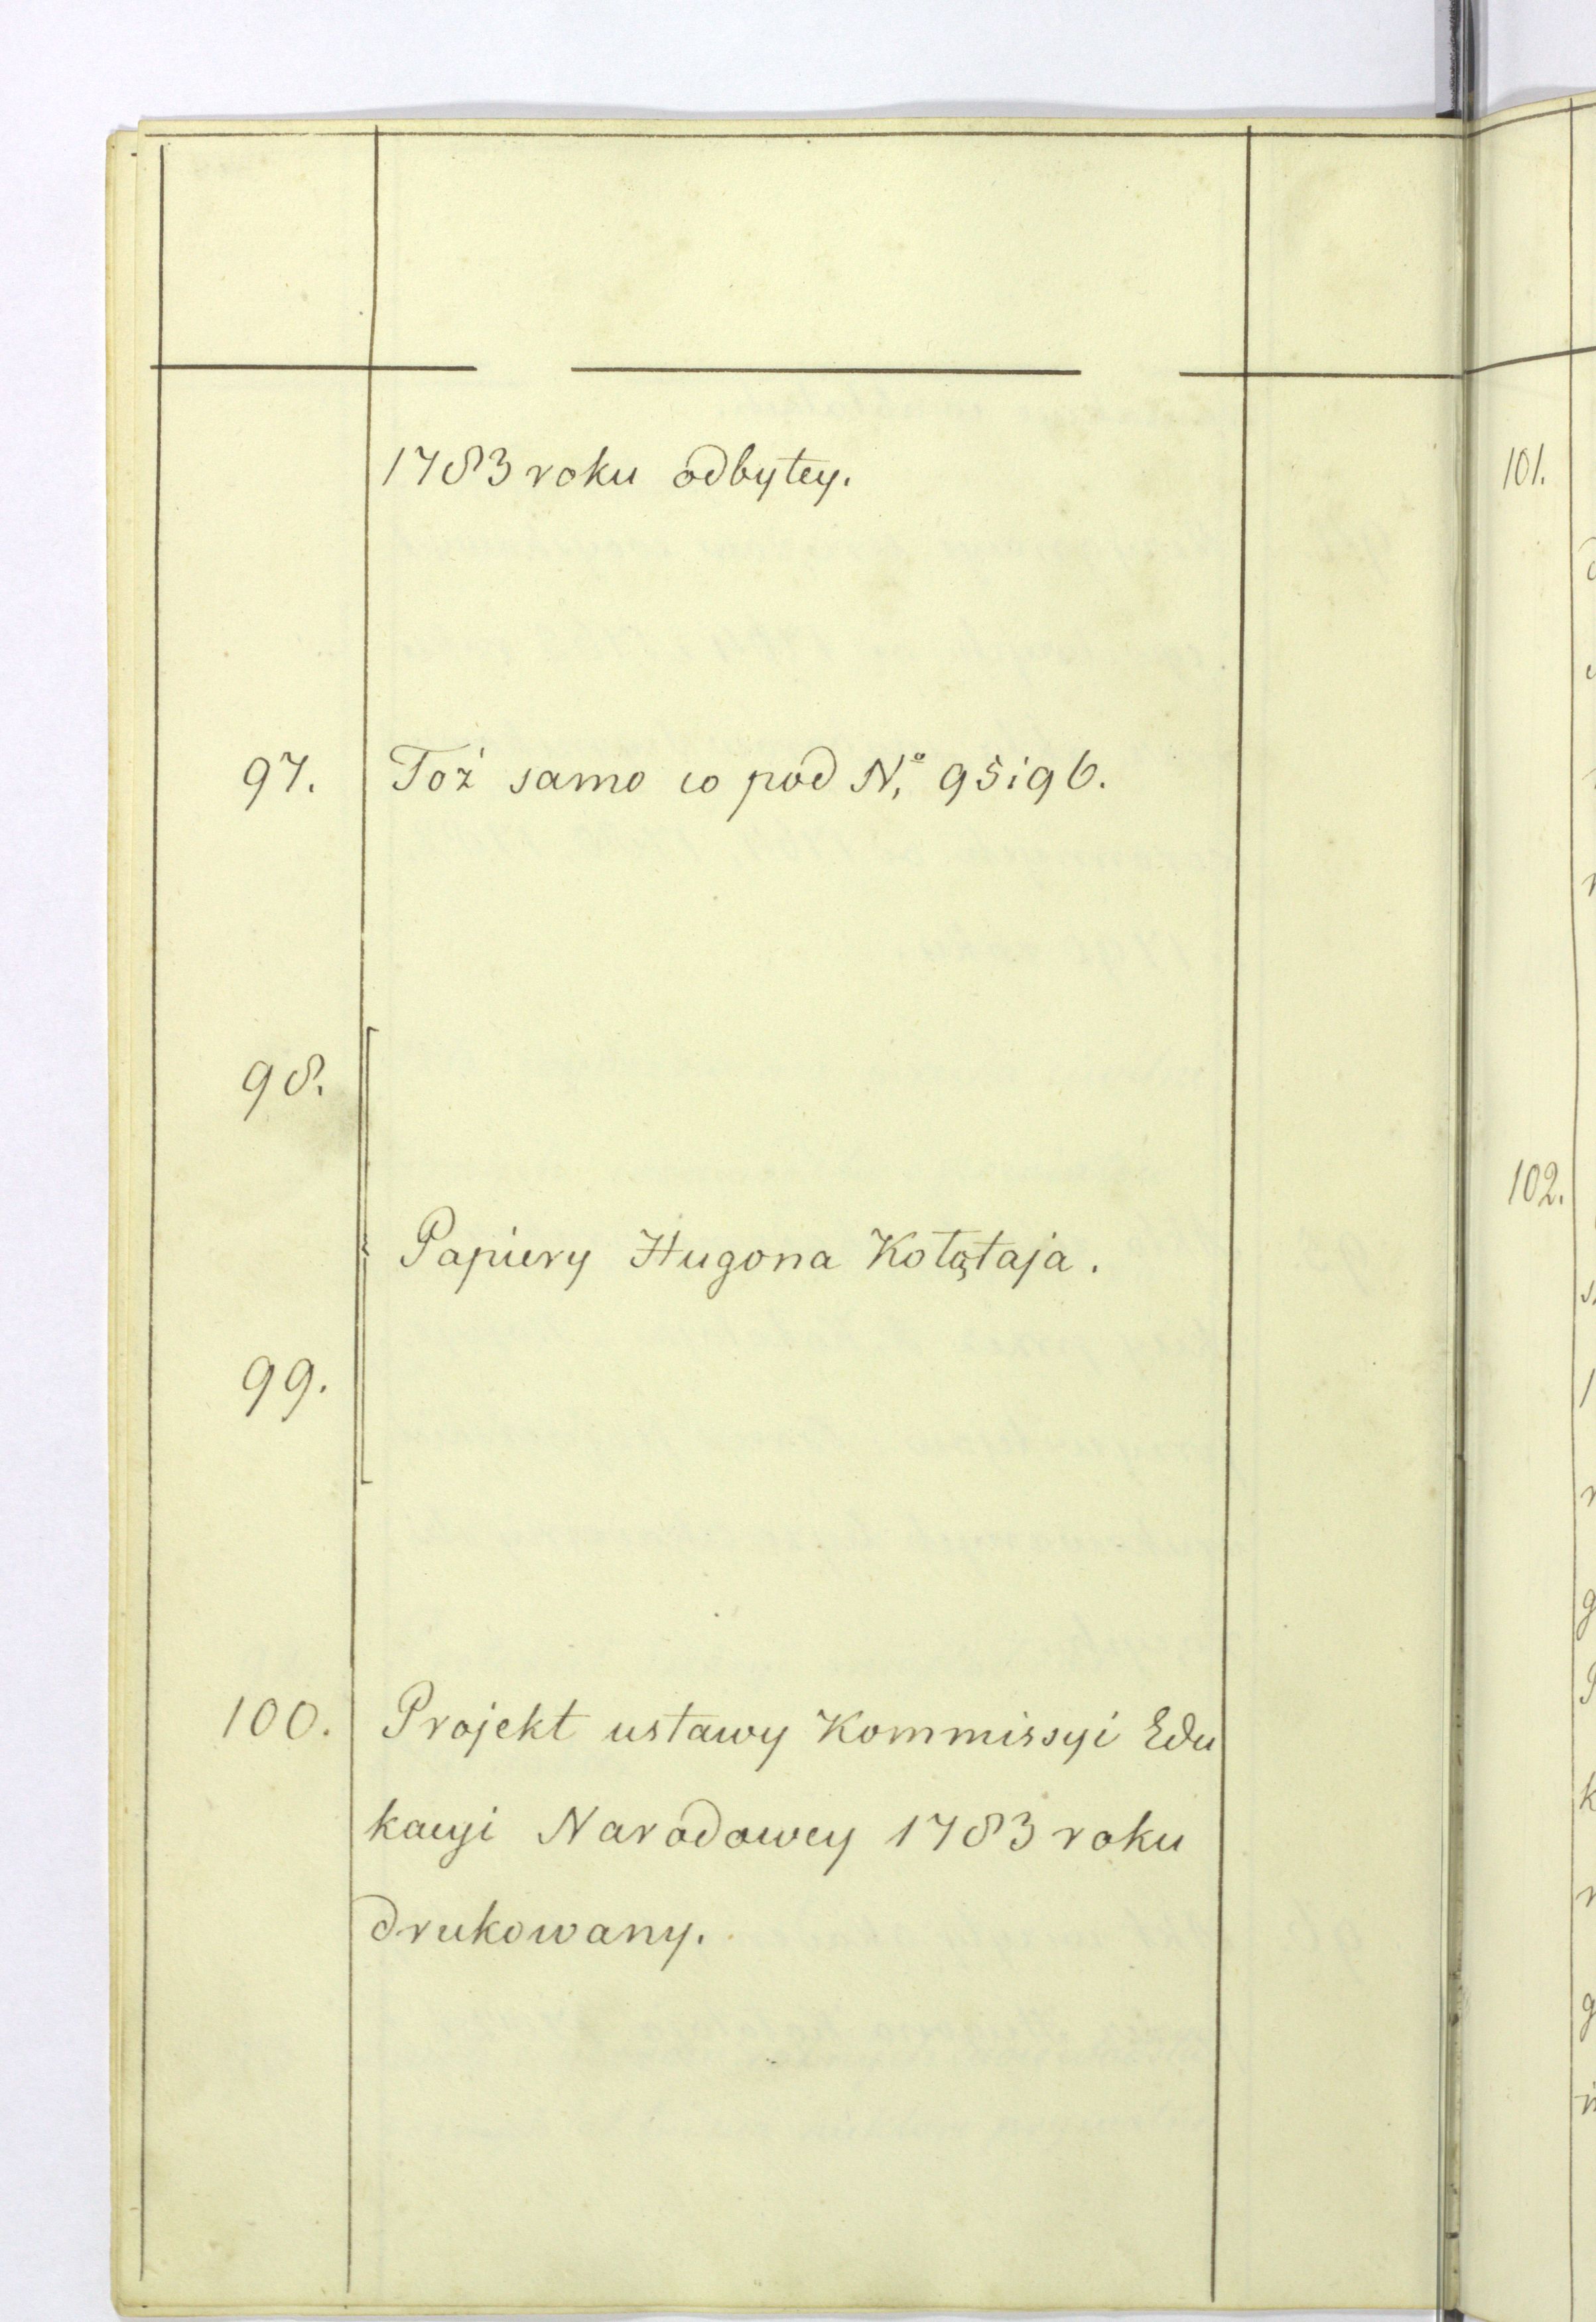 1783 roku odbytey.
97. Toż samo co pod N.º 95 i 96.
98.
Papiery Hugona Kołątaja.
99.
100. Projekt ustawy Kommissyi Edu
kacyi Narodowey 1783 roku
drukowany.
101.
102.